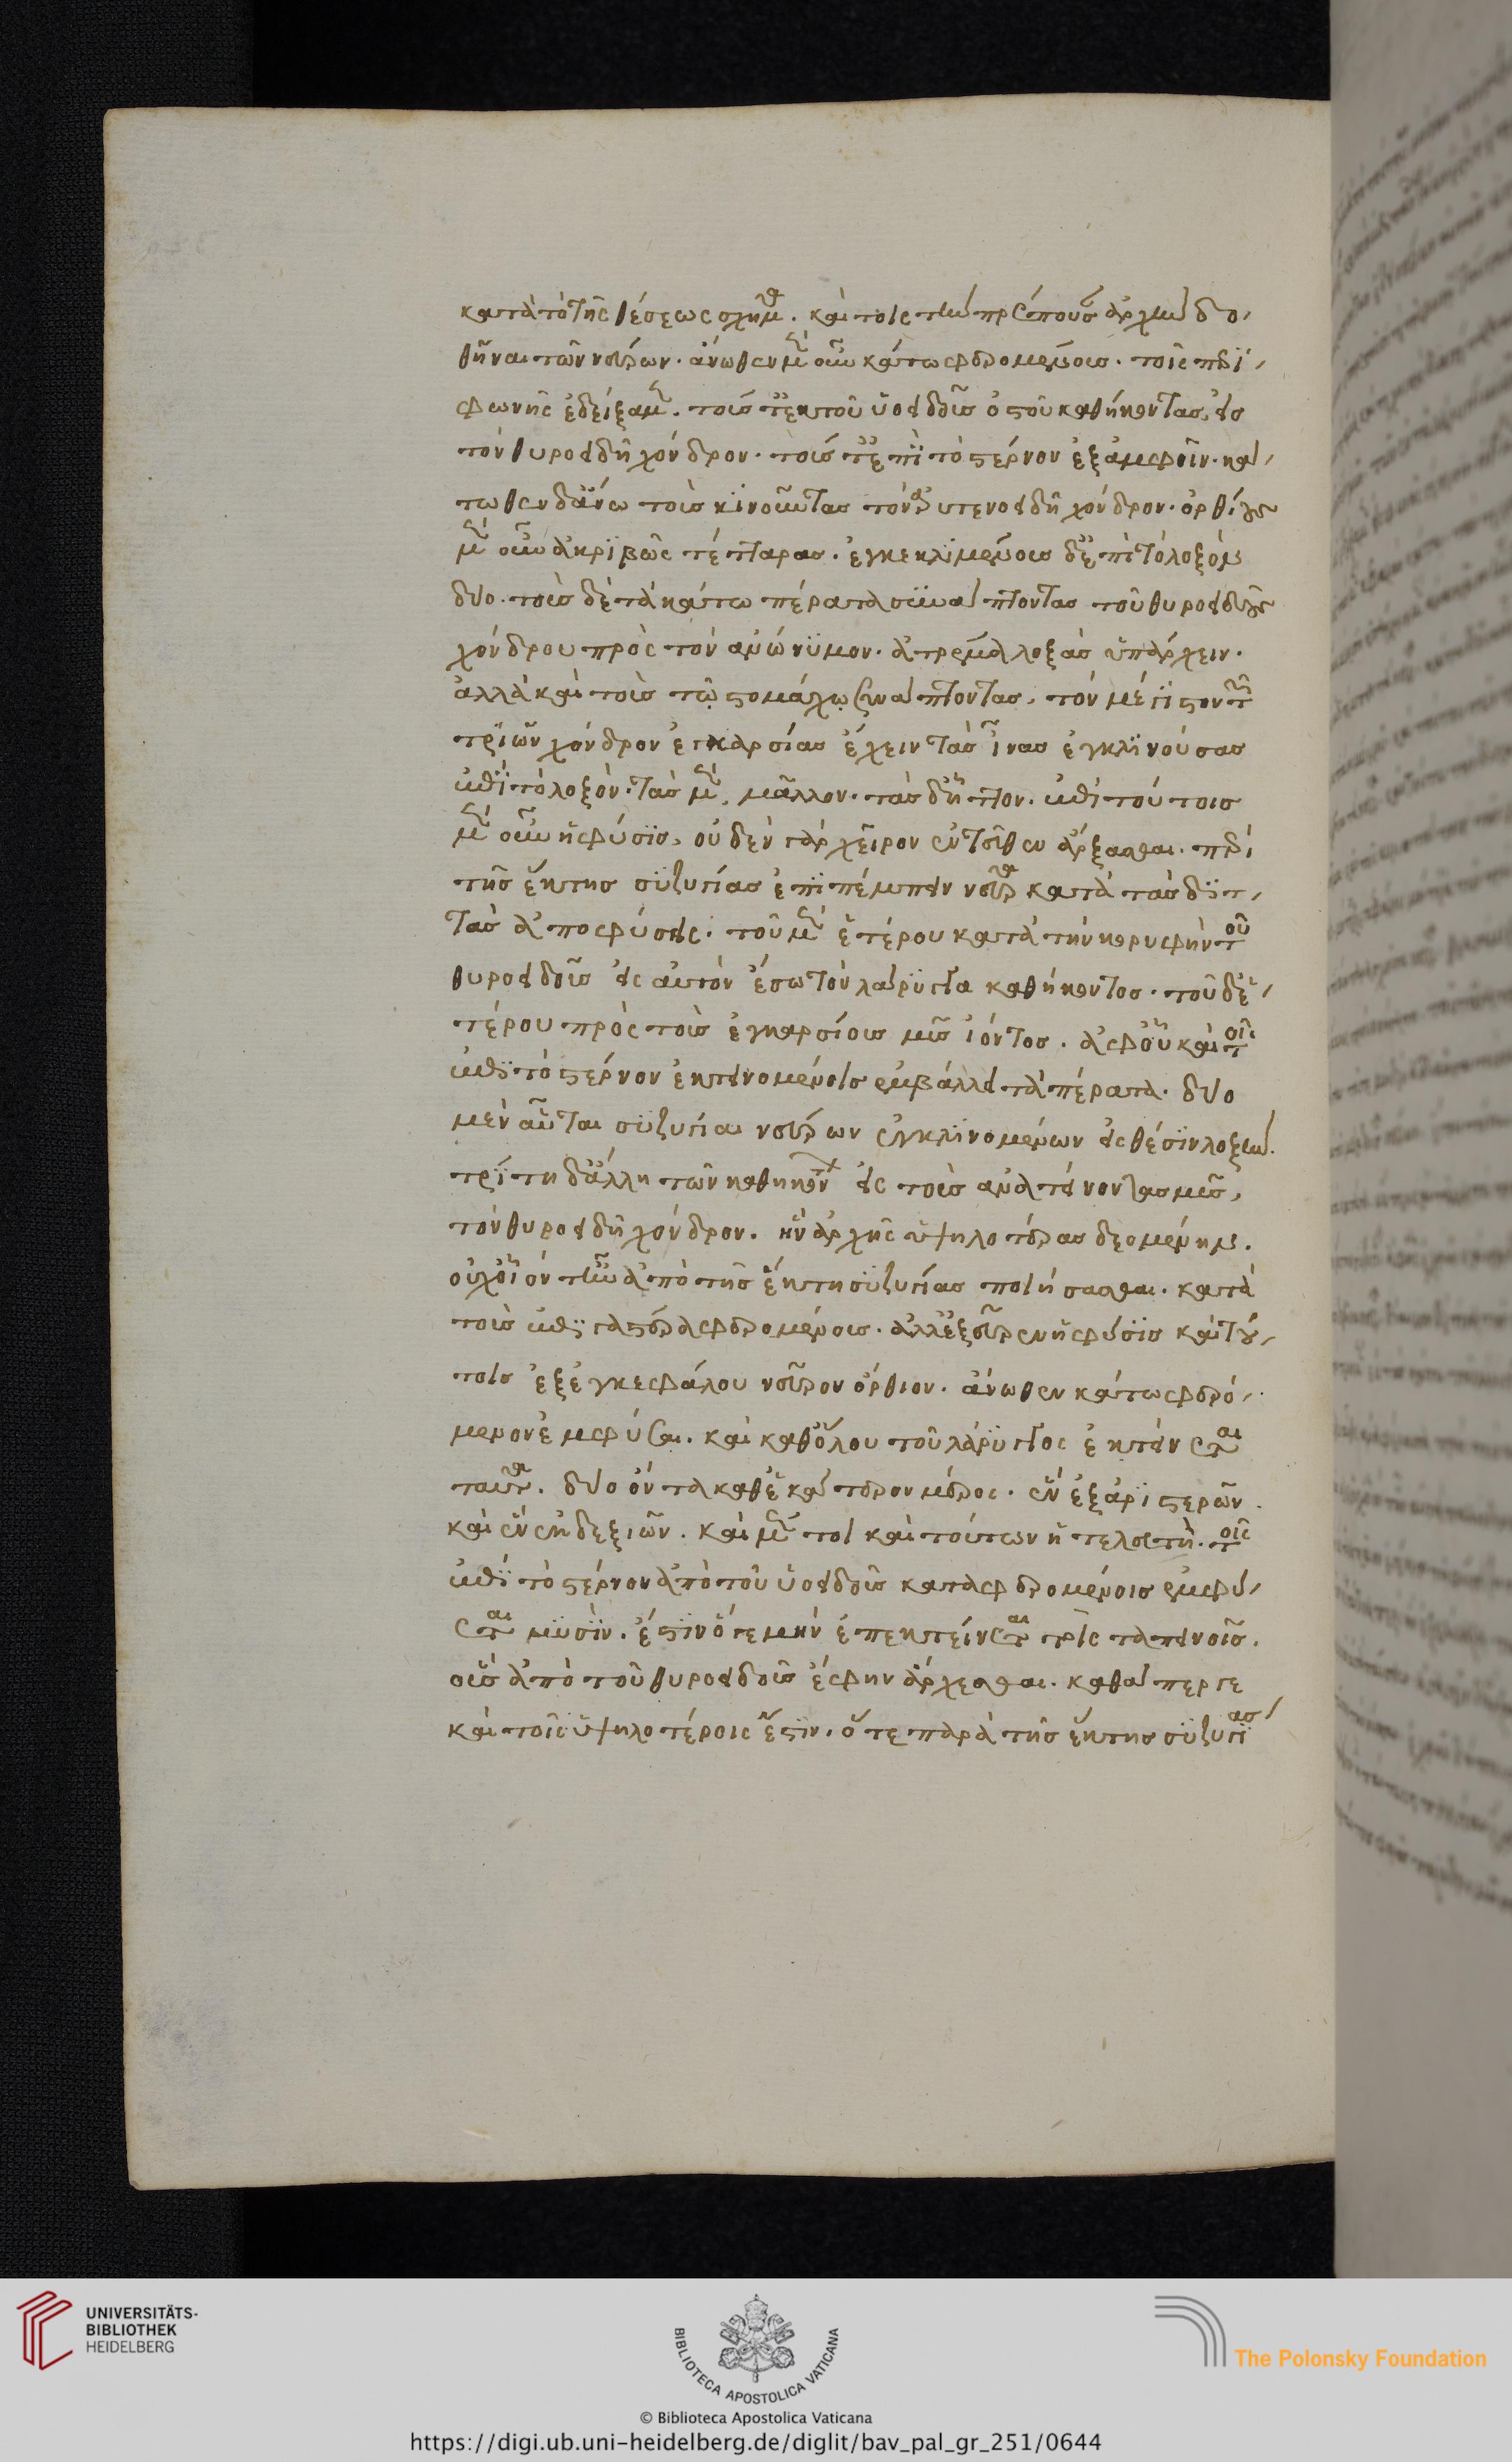 κατὰ τὸ τῆς θέσεως σχῆμα. καὶ τοῖς τὴν πρέπουσαν ἀρχὴν δο-
θῆναι τῶν νεύρων. ἄνωθεν μὲν οὖν κάτω φερομένους. τοῖς περὶ
φωνῆς ἐδείξαμεν. τούς τ' ἐκ τοῦ ὑοειδοῦς ὀστοῦ καθήκοντας εἰς
τὸν θυροειδῆ χόνδρον. τούς τ' ἐπὶ τὸ στέρνον ἐξ ἀμφοῖν. κά-
τωθεν δ' ἄνω τοὺς κινοῦντας τὸν ἀρυτενοειδῆ χόνδρον. ὀρθίους
μὲν οὖν ἀκριβῶς τέτταρας. ἐγκεκλιμένους δ' ἐπὶ τὸ λοξὸν
δύο. τοὺς δὲ τὰ κάτω πέρατα συνάπτοντας τοῦ θυροειδοῦς
χόνδρου πρὸς τὸν ἀνώνυμον. ἀτρέμα λοξὰς ὑπάρχειν.
ἀλλὰ καὶ τοὺς τῷ στομάχῳ συνάπτοντας, τὸν μέγιστον τῶν
τριῶν χόνδρον ἐγκαρσίας ἔχειν τὰς ἶνας ἐγκλινούσας
ἐπὶ τὸ λοξόν. τὰς μὲν, μᾶλλον. τὰς δ' ἧττον. ἐπὶ τούτοις
μὲν οὖν ἡ φύσις, οὐδὲν γὰρ χεῖρον ἐντεῦθεν ἄρξασθαι. περὶ
τῆς ἕκτης συζυγίας ἐπιπέμπειν νεῦρα κατὰ τὰς διτ-
τὰς ἀποφύσεις. τοῦ μὲν ἑτέρου κατὰ τὴν κορυφὴν τοῦ
θυροειδοῦς εἰς αὐτὸν ἔσω τὸν λάρυγγα καθήκοντος. τοῦ δ' ἑ-
τέρου πρὸς τοὺς ἐγκαρσίους μῦς ἰόντος. ἀφ' οὗ καὶ τοῖς
ἐπὶ τὸ στέρνον ἐκτεινομένοις ἐμβάλλει τὰ πέρατα. δύο
μὲν αὗται συζυγίαι νεύρων ἐγκλινομένων εἰς θέσιν λοξήν.
τρίτη δ' ἄλλη τῶν καθηκόντων εἰς τοὺς ἀνατείνοντας μῦς,
τὸν θυροειδῆ χόνδρον. ἣν ἀρχῆς ὑψηλοτέρας δεομένην.
οὐχ οἷόν τ' ἦν ἀπὸ τῆς ἕκτη συζυγίας ποιήσασθαι. κατὰ
τοὺς ἐπὶ γαστέρα φερομένους. ἀλλ' ἐξεῦρεν ἡ φύσις καὶ τού-
τοις ἐξ ἐγκεφάλου νεῦρον ὄρθιον. ἄνωθεν κάτω φερό-
μενον ἐμφῦσαι. καὶ καθόλου τοῦ λάρυγγος ἐκτείνεται
ταῦτα. δύο ὄντα καθ' ἑκάτερον μέρος. ἓν ἐξ ἀριστερῶν.
καὶ ἓν ἐκ δεξιῶν. καὶ μέν τοι καὶ τούτων ἡ τελευτὴ. τοῖς
ἐπὶ τὸ στέρνον ἀπὸ τοῦ ὑοειδοῦς καταφερομένοις ἐμφύ-
εται μυσίν. ἔστιν ὅτε μὴν ἐπεκτείνεται πρὸς ταπεινοῦς.
οὓς ἀπὸ τοῦ θυροειδοῦς ἔφην ἄρχεσθαι. καθάπερ γε
καὶ τοῖς ὑψηλοτέροις ἔστιν. ὅτε παρὰ τῆς ἕκτης συζυγίας
UNIVERSITÄTS-
BIBLIOTHEK
HEIDELBERG
BIBLIOTECA APOSTOLICA VATICANA
The Polonsky Foundation
© Biblioteca Apostolica Vaticana
https://digi.ub.uni-heidelberg.de/diglit/bav_pal_gr_251/0644